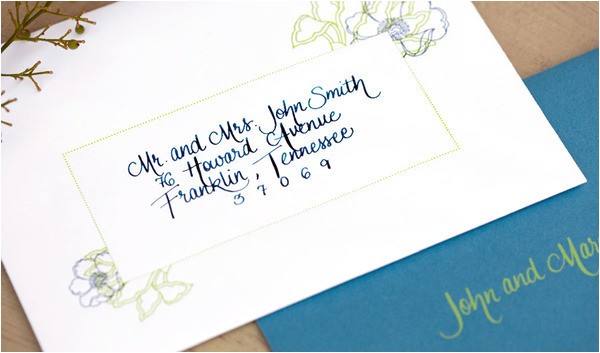 Mr. and Mrs. John Smith
76 Howard Avenue
Franklin, Tennessee
37069
John and